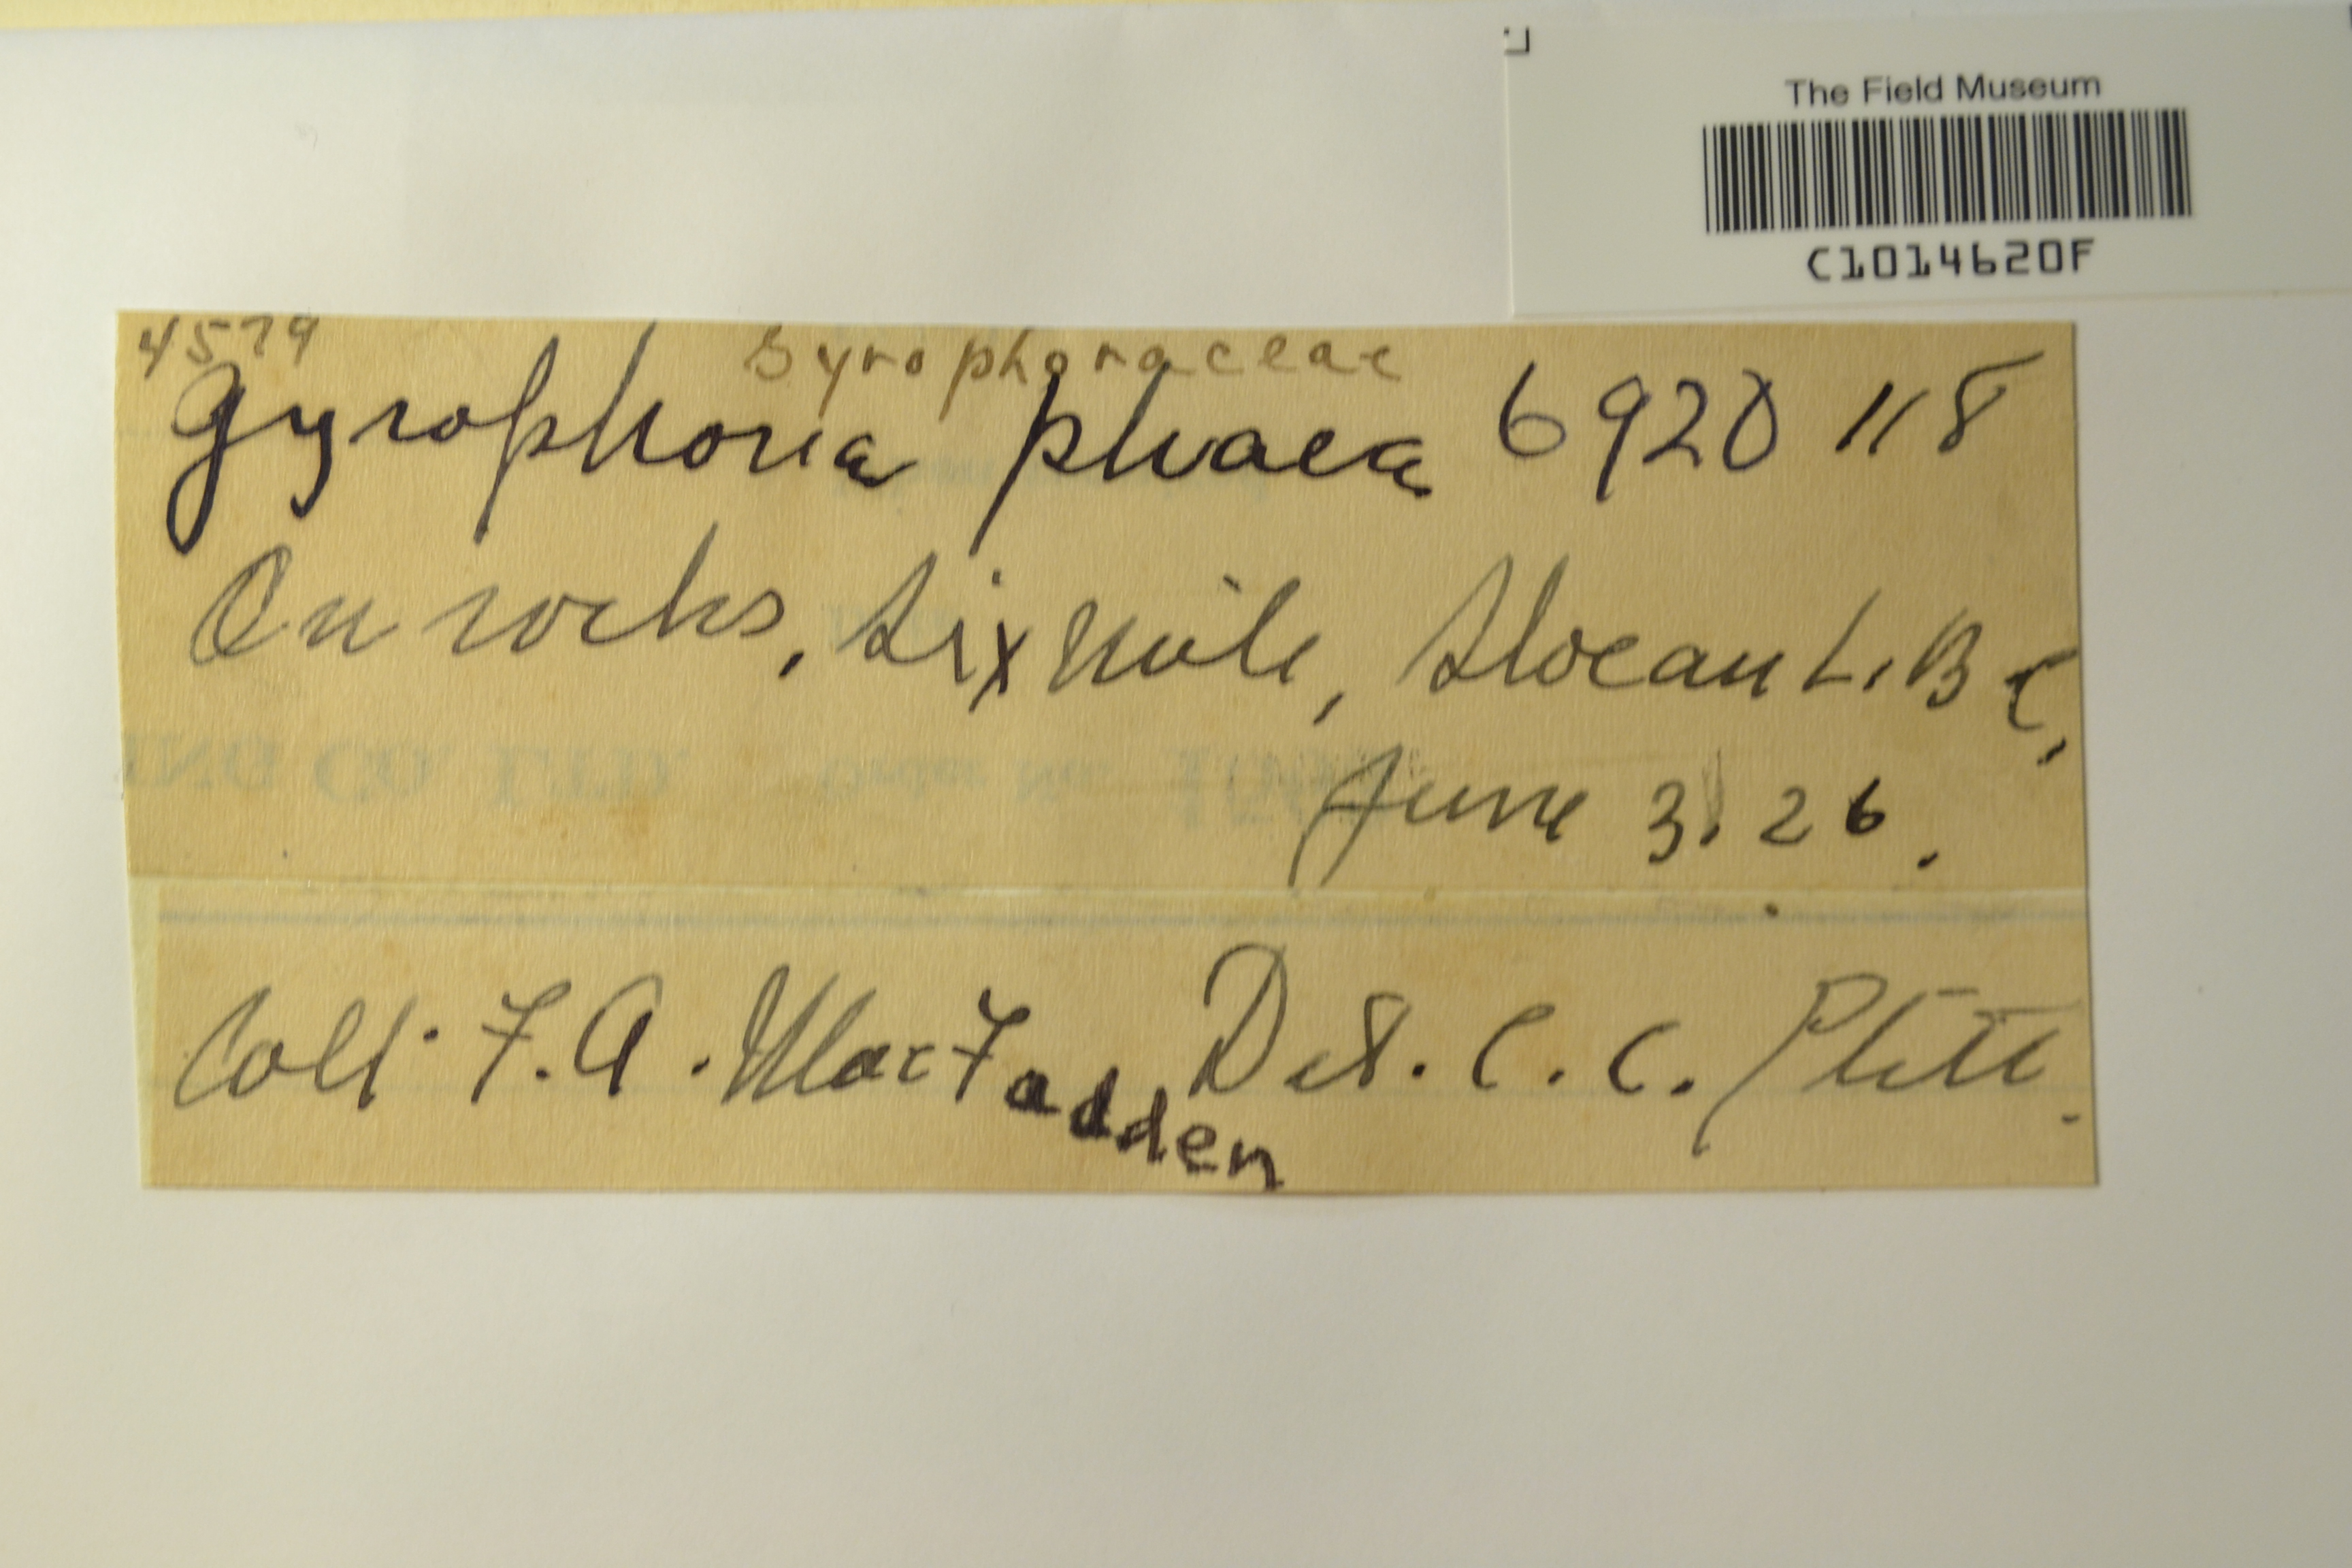 The Field Museum
C1014620F
4579
Gyrophoraceae
Gyrophora phaea 6920
On rocks, Six Mile, Slocan L. B C.
June 3. 26.
Coll. F. A. MacFadden Det. C. C. Plitt.